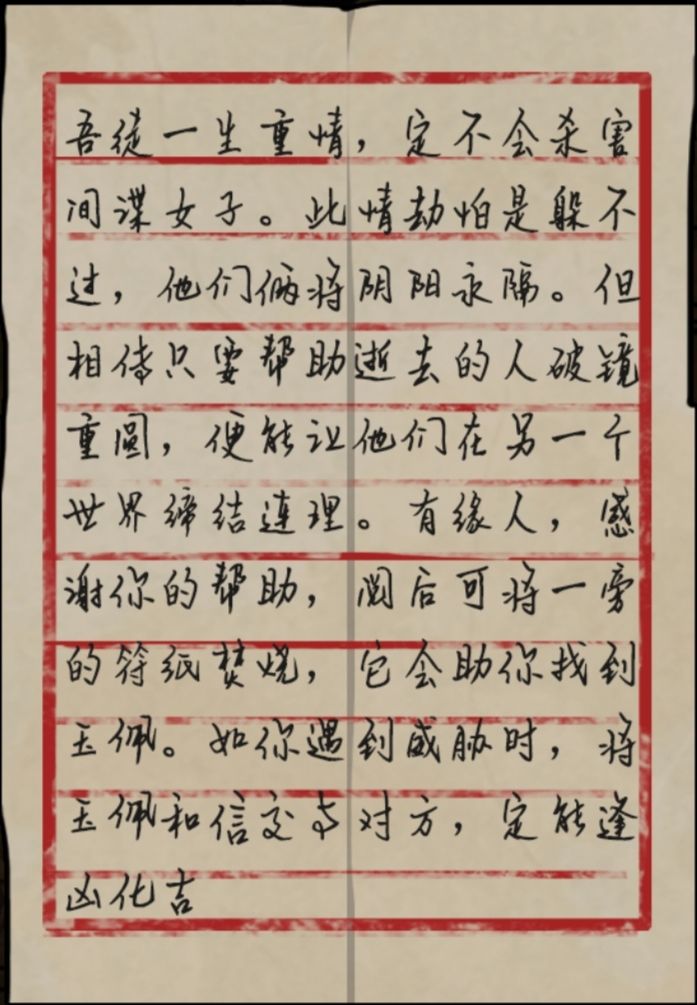 吾徒一生重情，定不会杀害
间谍女子。此情劫怕是躲不
过，他们俩将阴阳永隔。但
相传只要帮助逝去的人破镜
重圆，便能让他们在另一个
世界缔结连理。有缘人，感
谢你的帮助，阅后可将一旁
的符纸焚烧，它会助你找到
玉佩。如你遇到威胁时，将
玉佩和信交与对方，定能逢
凶化吉